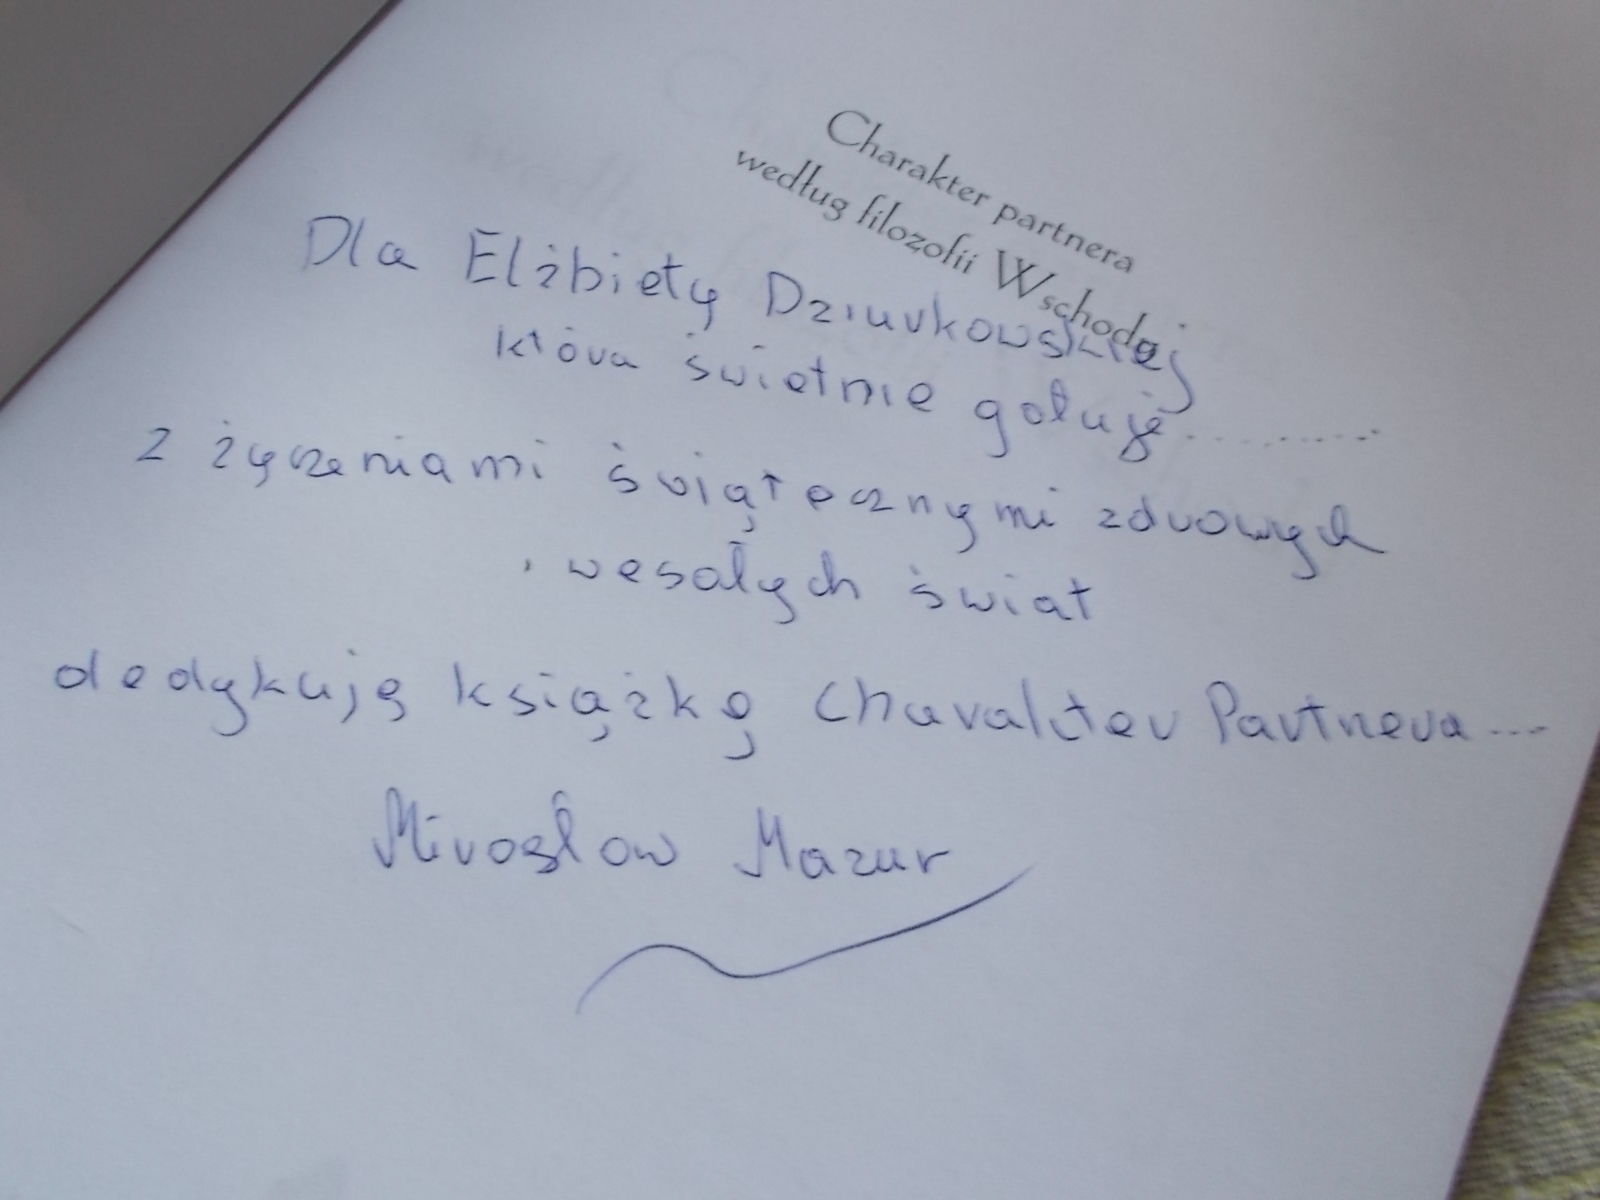 Charakter partnera
według filozofii Wschodu
Dla Elżbiety Dziurkowskiej
która świetnie gotuje..........
z życzeniami świątecznymi zdrowych
i wesołych świat
dedykuję książkę Charakter Partnera...
Mirosław Mazur